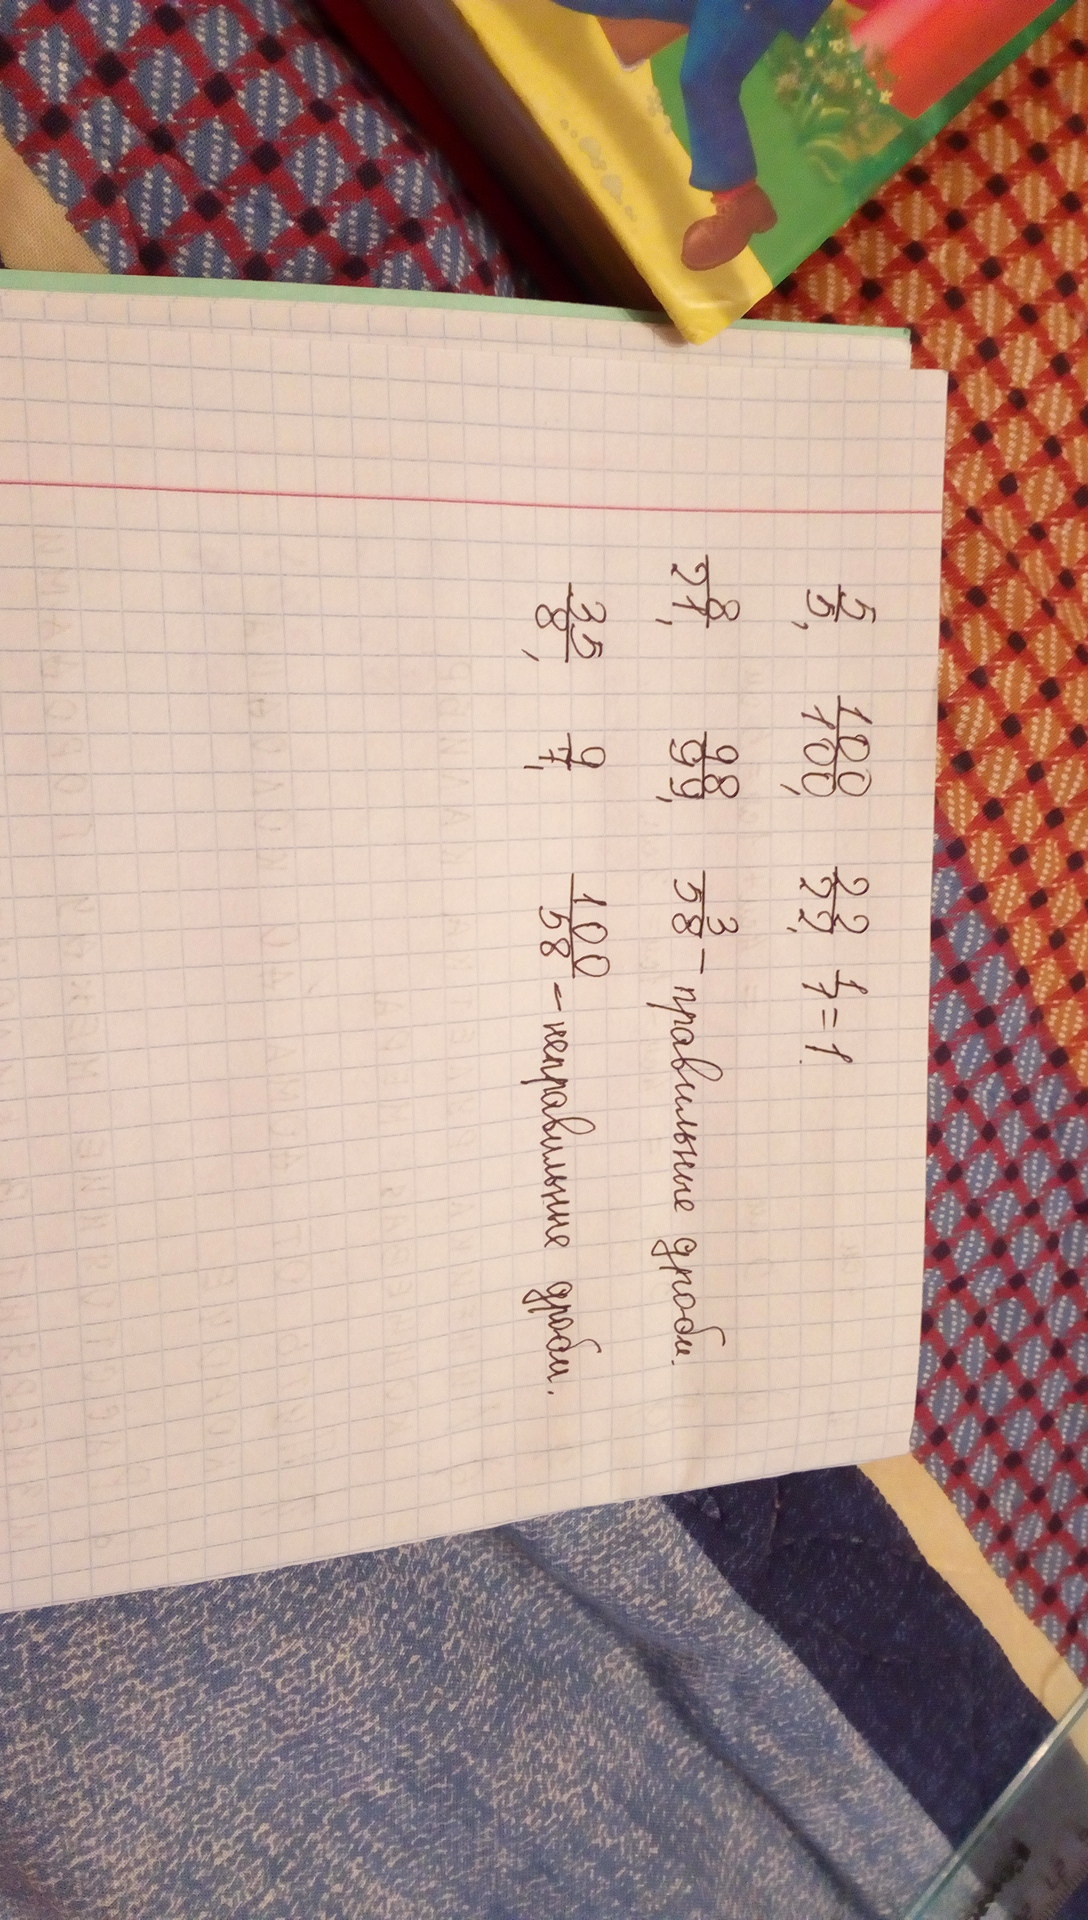 5/5, 100/100, 22/22, 1/1 = 1.
8/21, 98/99, 3/58 – правильные дроби.
35/8, 9/7, 100/58 – неправильные дроби.